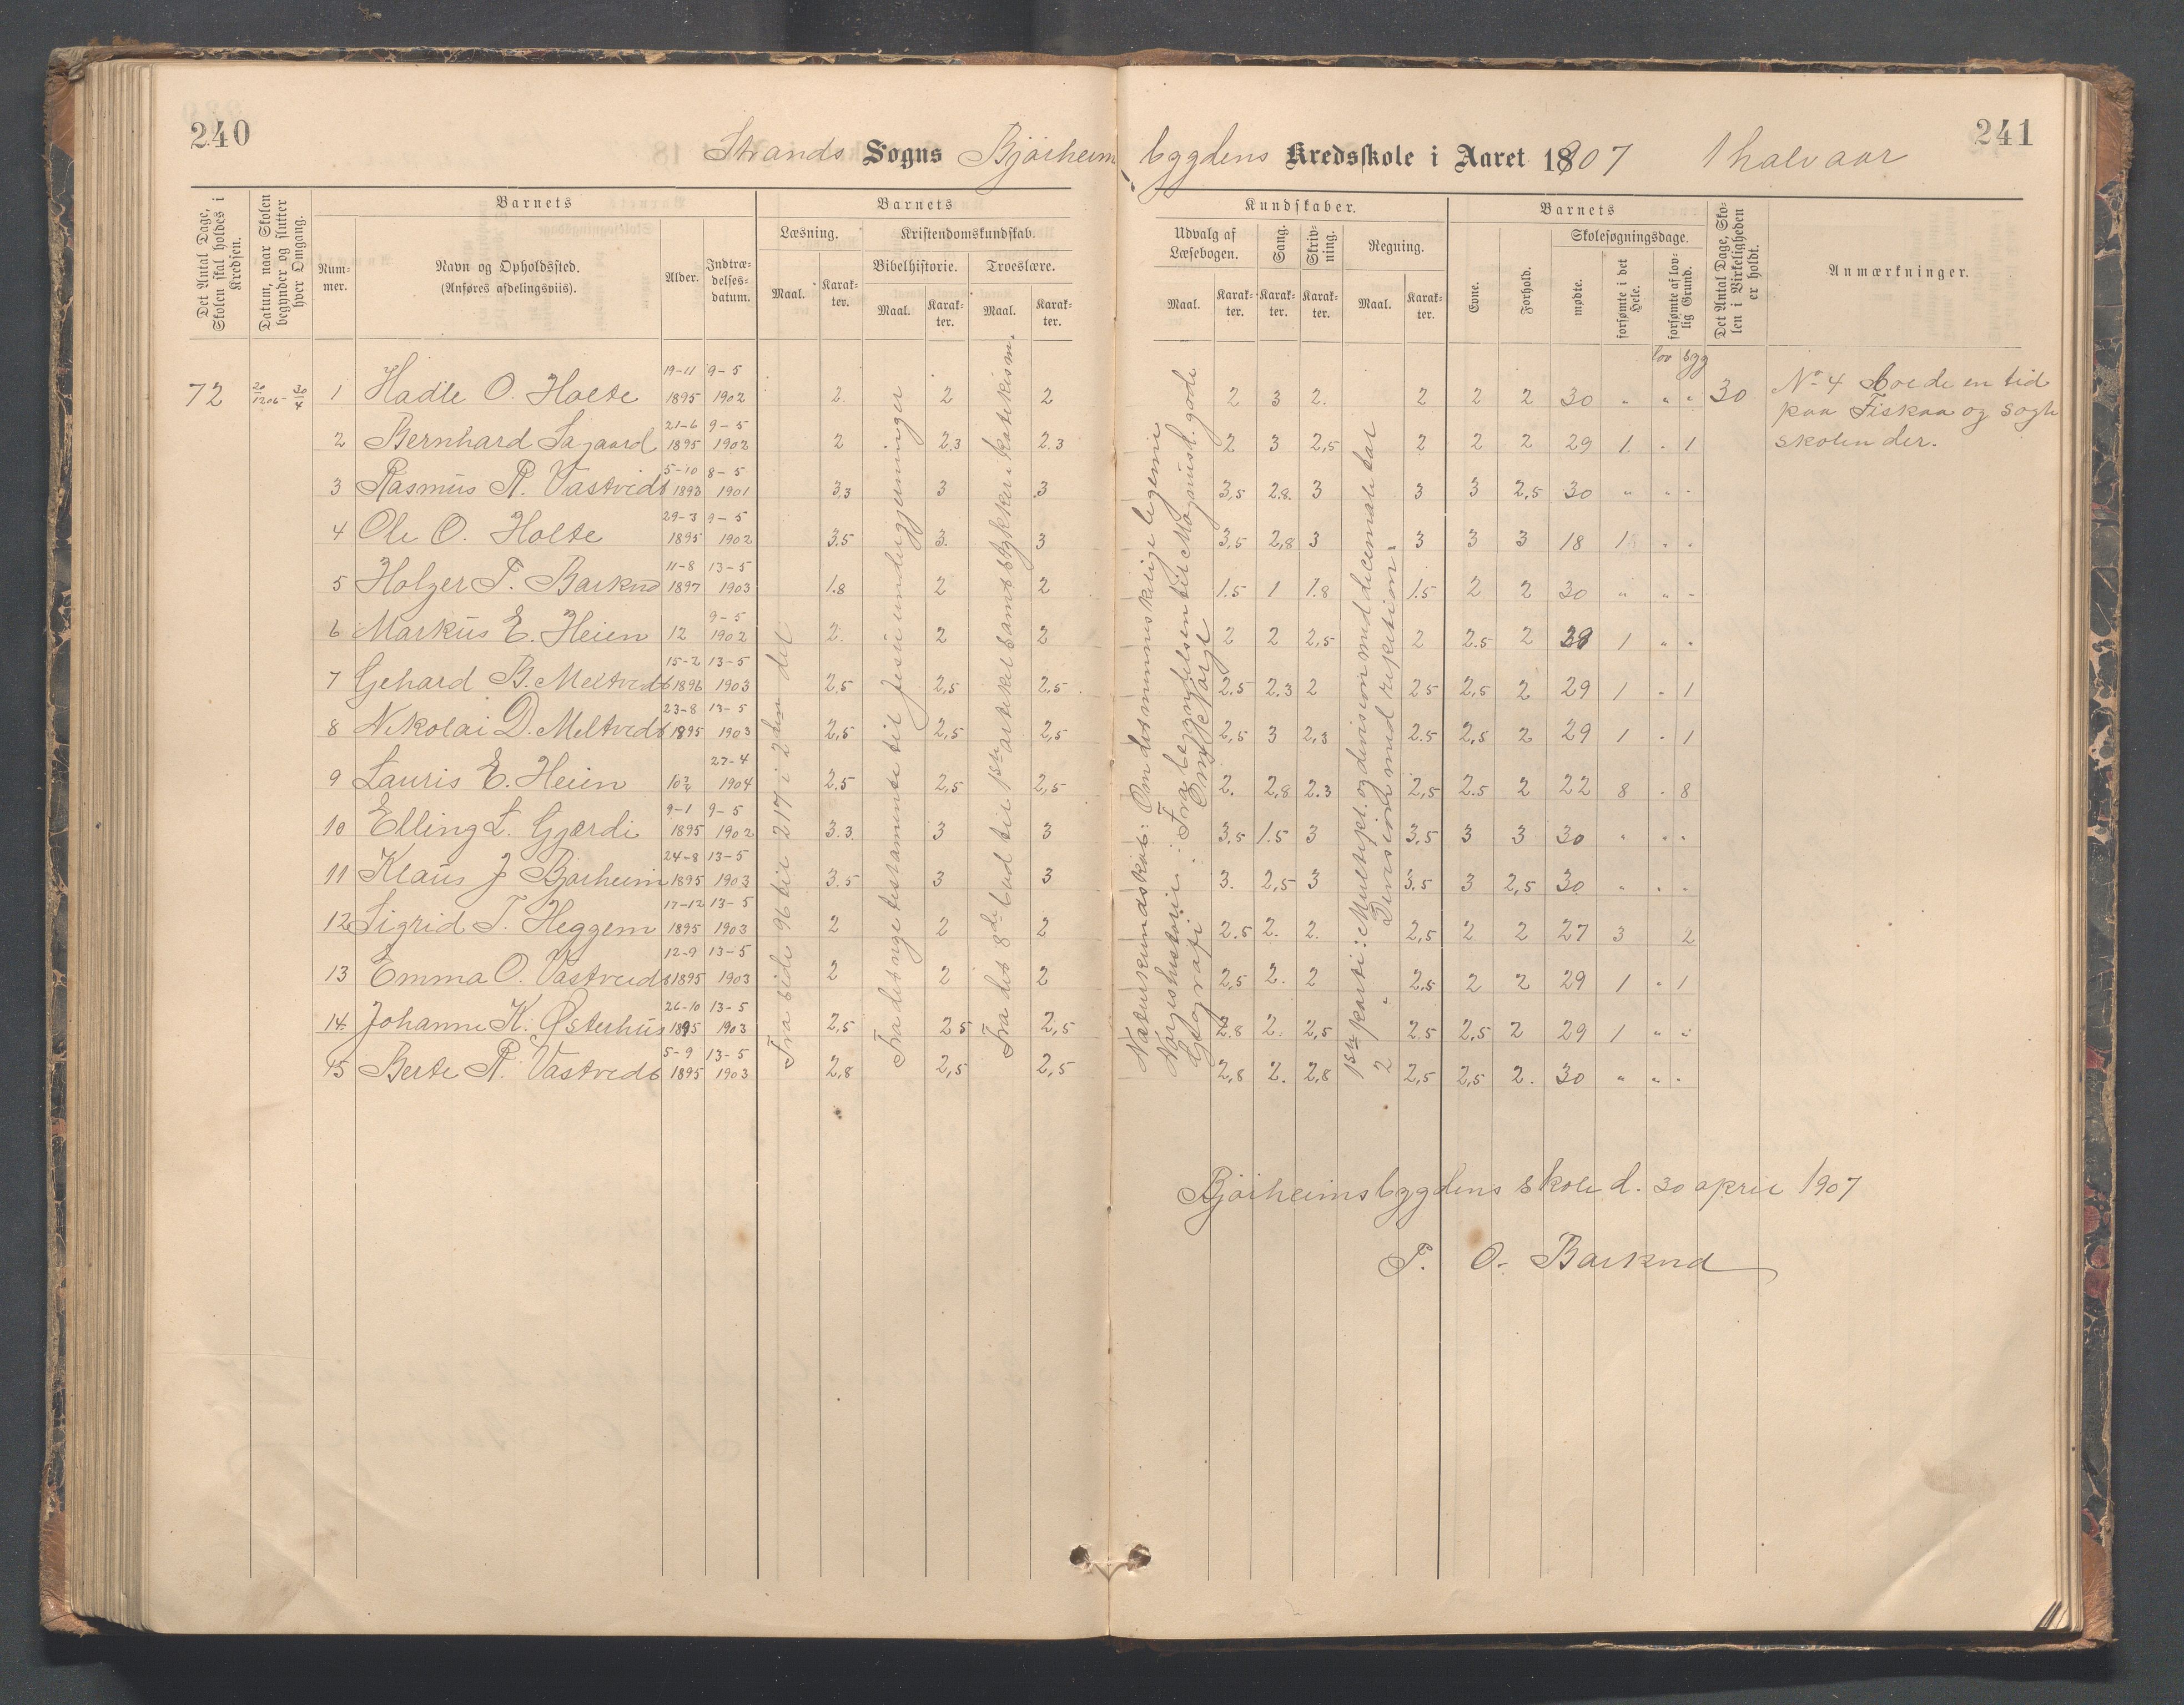 240
241
Strands Sogns Bjørheims bygdens Kredsskole i Aaret 1907 1 halvaar
Det Antal Dage, Skolen skal holdes i Kredsen.
Datum, naar Skolen begynder og slutter hver Omgang.
Barnets
Barnets
Kundskaber.
Barnets
Det Antal Dage, Skolen i Virkeligheden er holdt.
Anmærkninger.
Nummer.
Navn og Opholdssted.
(Anføres afdelingsviis).
Alder.
Indtrædelsesdatum.
Læsning.
Kristendomskundskab.
Bibelhistorie.
Troeslære.
Udvalg af Læsebogen.
Sang.
Skrivning.
Regning.
Evne.
Forhold.
Skolesøgningsdage.
mødte.
forsømte i det Hele.
forsømte af lovlig Grund.
Maal. Karakter. Maal. Karakter. Maal. Karakter. Maal. Karakter. Karakter. Karakter. Maal. Karakter.
lov syg
72 20/12 06 - 30/4 1 Hadle O. Holte 19-11 1895 9-5 1902 2. 2 2 2 3 2. 2 2 2 30 " " " 30
2 Bernhard Sagaard 21-6 1895 9-5 1902 2 2.3 2.3 2 3 2,5 2 2 2 29 1. - 1
3 Rasmus R. Vastvedt 5-10 1893 8-5 1901 3,3 3 3 3,5 2.8. 3 3 3 2,5 30 " " -
4 Ole O. Holte 29-3 1895 9-5 1902 3.5 3. 3 3,5 2,8 3 3 3 3 18 1 " -
5 Holger T. Barknd 11-8 1897 13-5 1903 1.8 2 2 1.5 1 1.8 1.5 2 2 30 " " -
6 Markus E. Heien 12 9-5 1902 2. 2 2 2 2 2,5 2 2.5 2 29 1 " -
7 Gehard B. Meltvedt 15-2 1896 13-5 1903 2,5 2,5 2,5 2,5 2.3 2 2 5 2,5 2 29 1 - 1
8 Nikolai D. Meltvedt 23-8 1895 13-5 1903 2,5 2,5 2,5 2,5 3 2,3 2.5 2,5 2 29 1 - 1
9 Lauris E. Heien 10½ 27-4 1904 2.5 2,5 2,5 2. 2,8 2.3 2,5 2.5 2 22 8 - 8
10 Elling L. Gjærdi 9-1 1895 9-5 1902 3.3 3 3 3,5 1.5 3 3,5 3 3 30 " " "
11 Klaus J Bjørheim 24-8 1895 13-5 1903 3.5 3 3 3. 2,5 3 3.5 3 2,5 30 " " -
12 Sigrid T. Heggem 17-12 1895 13-5 1903 2 2 2 2.5 2. 2. 2,5 2 2 27 3 2
13 Emma O. Vastveidt 12-9 1895 13-5 1903 2 2 2 2,5 2. 2 2.5 2 2 29 1 " 1
14. Johanne K. Østerhus 26-10 1895 13-5 1903 2,5 2 5 2,5 2.8 2. 2,5 2.5 2,5 2 29 1 " "
15 Berte R. Vastvedt 5-9 1895 13-5 1903 2,8 2,5 2,5 2,8 2. 2,8 2,5 2,5 2. 30 " " -
Fra side 96 til 217 i 2den del
Fra det nye testamente til Jesu undergjerninger
Fra det 8de bud til 1ste artikel samt stykker i katekism.
Naturkundskab: Om det menneskelige legeme
Norgeshistorie: Fra begyndelsen til Magnus d. gode
Geografi Omgefjorge
1ste parti: Multipl. og division med decimaltal
2 " Division med repetition.
No 4 boede en tid
paa Fiskaa og søgte
skolen der.
Bjørheimsbygdens skole d. 30 april 1907
T. O. Barknd